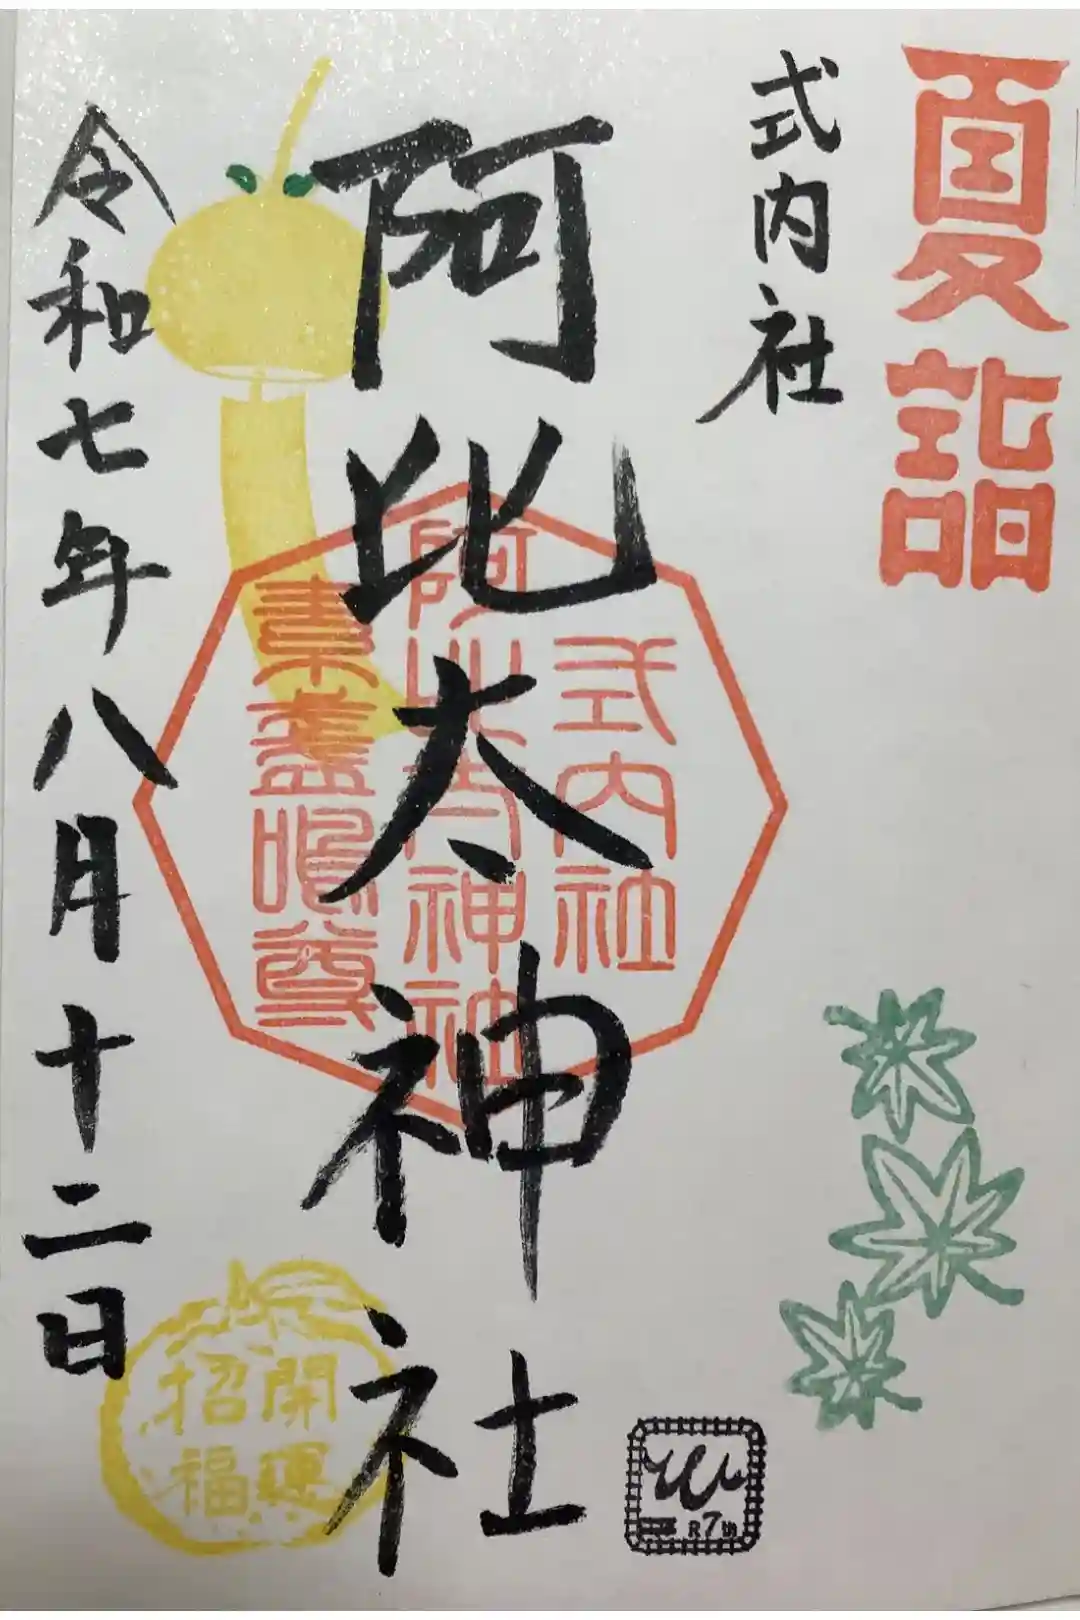 夏詣
式内社
阿比太神社
式内社
阿比太神社
素盞嗚尊
令和七年八月十二日
開運
招福
R7